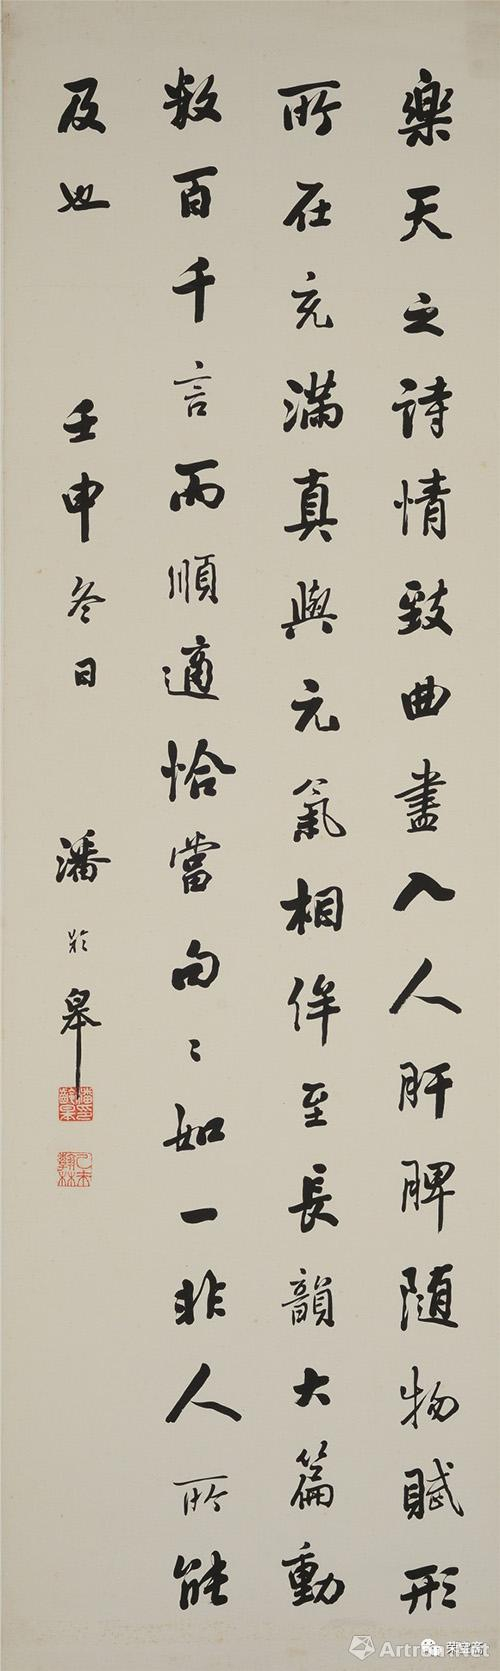 樂天之詩情致曲盡入人肝脾隨物賦形
所在充滿真與元氣相侔至長韻大篇動
數百千言而順適恰當句〻如一非人所能
及也 壬申冬日 潘齡皋
潘齡皋印
己未翰林
荣宝斋
Artron.Net